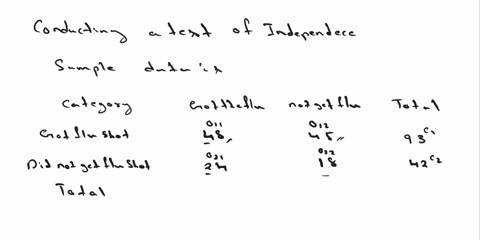 Conducting a test of Independece
Sample data is
Category Got the flu not get flu Total
O11 O12
Got flu shot 48, 45,, 93 C1
O21 O22
Did not get flu shot 24 18 42 C2
Total